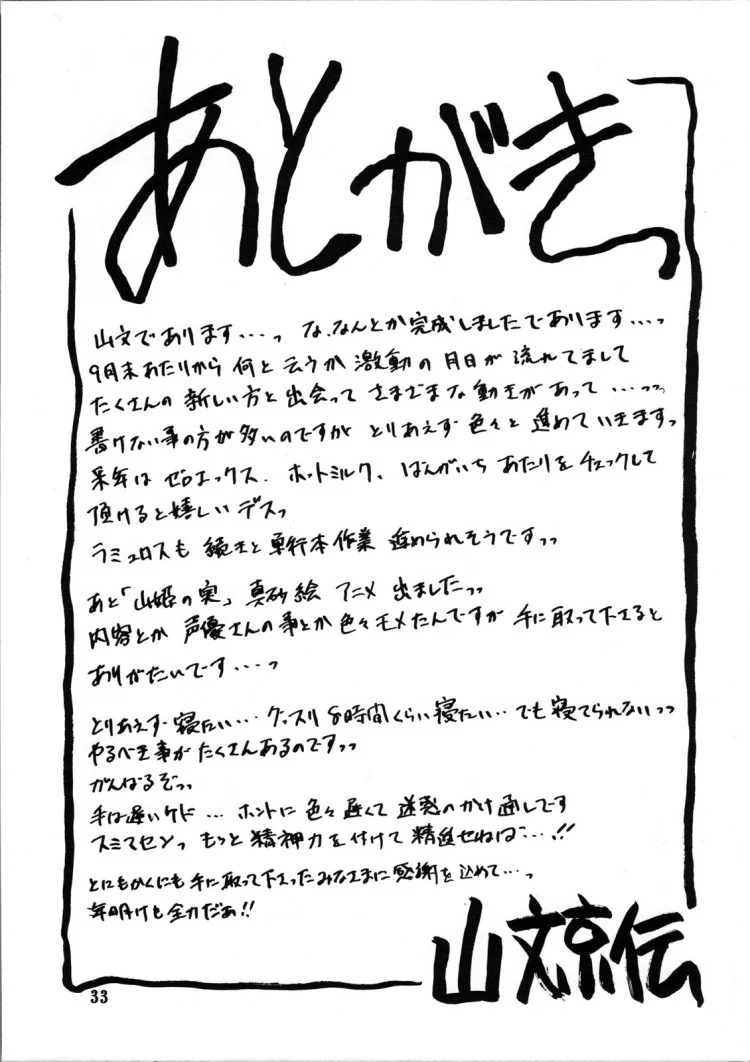 あとがき
山文であります・・・っ な、なんとか完成しましたであります・・・っ
9月末あたりから 何と云うか 激動の月日が 流れてまして
たくさんの 新しい方と 出会って さまざまな 動きがあって ・・・っっ
書けない事の方が多いのですが とりあえず 色々と 進めていきますっ
来年は ゼロエックス、ホットミルク、ばんがいち あたりを チェックして
頂けると嬉しい デスっ
ラミュロスも 続きと 単行本作業 進められそうですっっ
あと「山姫の実」真砂絵 アニメ 出ましたっっ
内容とか 声優さんの事とか 色々モメたんですが 手に取って下さると
ありがたいです・・・っ
とりあえず 寝たい・・・ グッスリ 8時間くらい寝たい・・・ でも 寝てられないっっ
やるべき事が たくさんあるのですっっ
がんばるぞっっ
手は遅いケド ・・・ ホントに 色々 遅くて 迷惑のかけ通しです
スミマセンっ もっと 精神力を付けて 精進せねば・・・!!
とにもかくにも 手に取って下さったみなさまに 感謝を込めて・・・っ
年明けも全力だぁ!!
山文京伝
33